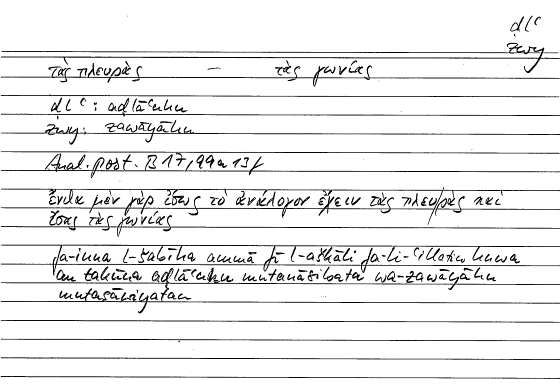 ḍlʿ
zwy
τὰς πλευρὰς – τὰς γωνίας
ḍlʿ: aḍlāʿuhu
zwy: zawāyāhu
Anal. post. B 17, 99a 13f
ἔνθα μὲν γὰρ ἴσως τὸ ἀνάλογον ἔχειν τὰς πλευρὰς καὶ
ἴσας τὰς γωνίας
fa-inna l-šabīha ammā fī l-aškāli fa-li-ʿillatin huwa
an takūna aḍlāʿuhu mutanāsibata wa-zawāyāhu
mutasāwiyatan